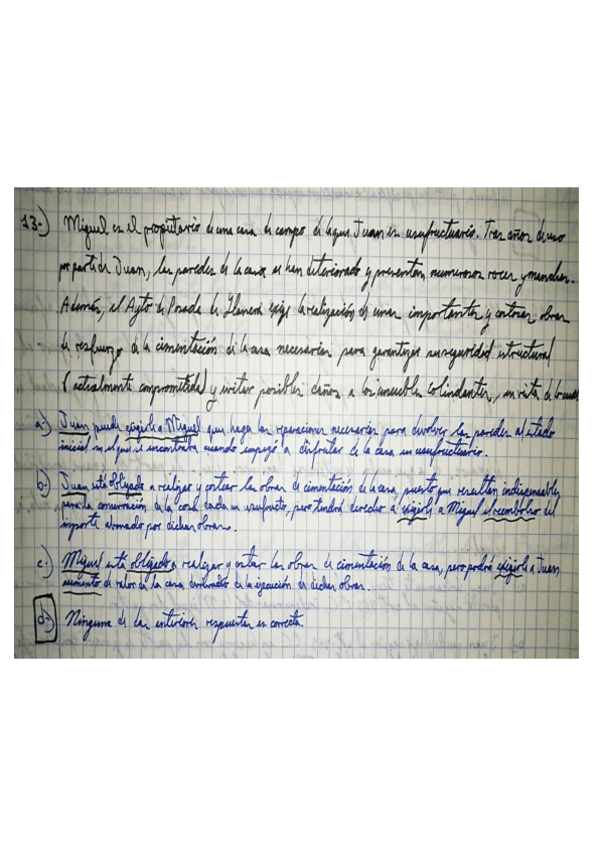 13-) Miguel es el propietario de una casa de campo de la que Juan es usufructuario. Tras años de uso
por parte de Juan, las paredes de la casa, se han deteriorado y presentan numerosos roces y manchas.
Además, el Ayto de Posada de Llanera exige la realización de unas importantes y costosas obras
de refuerzo de la cimentación de la casa necesarias para garantizar su seguridad estructural
(actualmente comprometida) y evitar posibles daños a los inmuebles colindantes, en vista de lo cual
a-) Juan puede exigirle a Miguel que haga las reparaciones necesarias para devolver las paredes al estado
inicial en el que se encontraba cuando empezó a disfrutar de la casa en usufructuario.
b-) Juan está obligado a realizar y costear las obras de cimentación de la casa, puesto que resultan indispensables
para la conservación de la cosa dada en usufructo, pero tendrá derecho a exigirle a Miguel el reembolso del
importe abonado por dichas obras.
c-) Miguel está obligado a realizar y costear las obras de cimentación de la casa, pero podrá exigirle a Juan
aumento de valor de la casa de la ejecución de dichas obras.
d-) Ninguna de las anteriores respuestas es correcta.